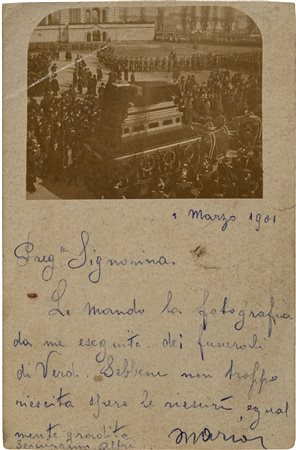 1 Marzo 1901
Preg.ª Signorina
Le mando la fotografia
da me eseguita dei funerali
di Verdi. Sebbene non troppo
riescita spero le riescirà egual
mente gradita
Mario